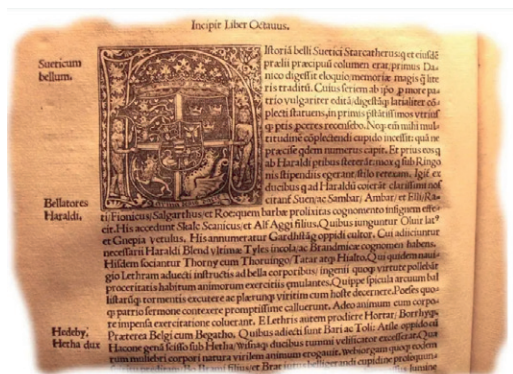 Incipit Liber Octauus.
Sueticum
bellum.
Istoriā belli Suetici Starcatherus: qͥ et eiusdē
prælii præcipuū columen erat, primus Da-
nico digessit eloquio, memoriæ magis q̃ lite
ris traditā. Cuius seriem ab ipo p more pa-
trio vulgariter editā, digestāq̨ latialiter cō-
plecti statuens, in primis pstātissimos vtriusq̨
ptis pceres recensebo. Neq̨ em̄ mihi mul-
titudinē cōplectendi cupido incessit: quā ne
præcise qdem numerus capit. Et prius eos q
ab Haraldi ptibus steterāt: mox q sub Ringo
nis stipendiis egerant, stilo retexam. Igit̃ ex
ducibus q ad Haraldū coierāt clarissimi nos
citanf Suen, ac Sambar, Ambar, et Elli, Ra
Bellatores
Haraldi,
ti Fionicus, Salgarthus, et Roe: quem barbæ prolixitas cognomento insignem effe-
cit. His accedunt Skale Scanicus, et Alf Aggi filius. Quibus iunguntur Oluir latꝰ
et Gnepia vetulus. His annumeratur Gardh stāg oppidi cultor. Cui adiiciuntur
necessarii Haraldi Blend vltimæ Tyles incola, ac Brandmicæ cognomen habens.
Hisdem sociantur Thorny cum Thoruingo, Tatar atq̨ Hialto. Qui quidem naui-
gio Lethram aduecti instructis ad bella corporibus, ingenii quoq̨ virtute pollebāt
proceritatis habitum animorum exercitiis æmulantes. Quippe spicula arcuum bal
listarūq̨ tormentis excutere ac plærunq̨ viritim cum hoste decernere. Poeses quo-
q̨ patrio sermone contexere promptissime calluerunt. Adeo animum cum corpo-
re impensa exercitatione coluerant. E Lethris autem prodiere Hortar, Borrhyq̨.
Hedeby,
Hetha dux
Præterea Belgi cum Begatho. Quibus adiecti sunt Bari ac Toli: Atsle oppido
Hacone genā scisso sub Hetha, Wisnaq̨ ducibus tummi velificator excesserat. Quarum
tum muliebri corpori natura virilem animum erogauit. webiorgam quoq̨ eodem
filius, et Brat